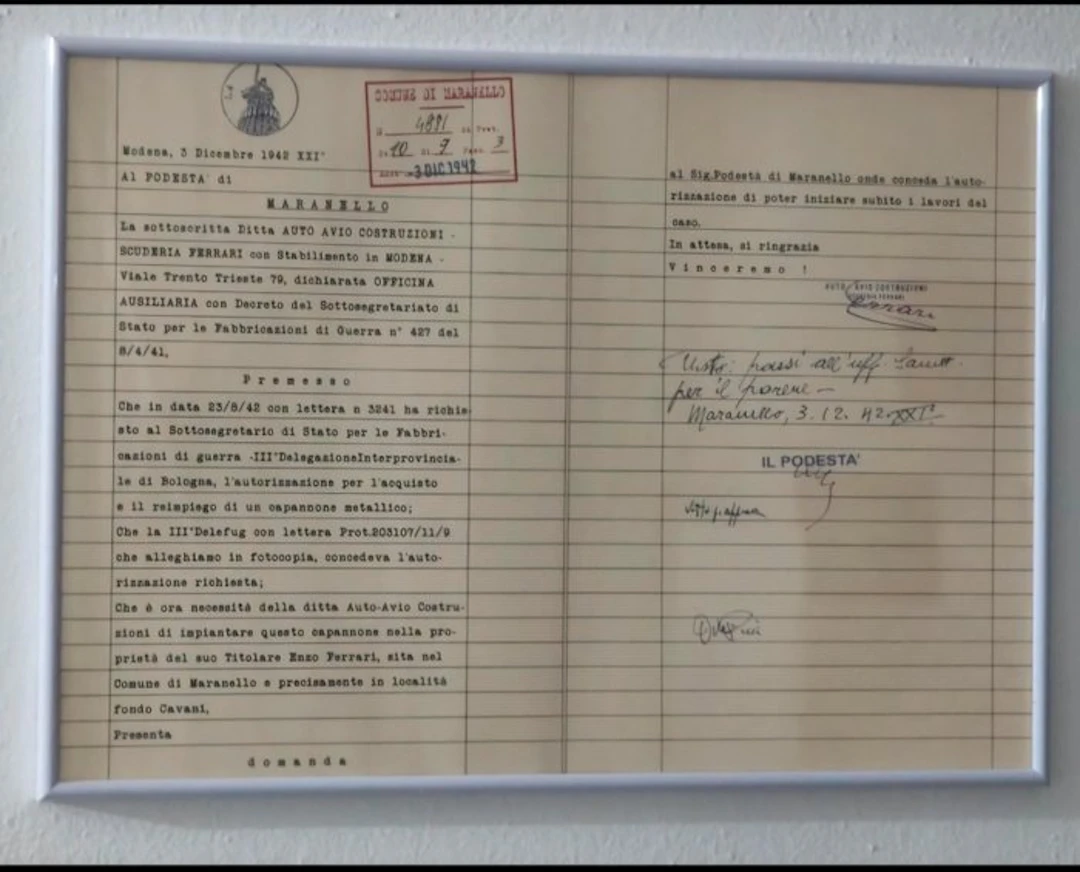 COMUNE DI MARANELLO
N 4881 di Prot.
Ct. 10 Cl. 9 Fasc. 3
3 DIC 1942
Modena, 3 Dicembre 1942 XXI°
Al PODESTA' di
MARANELLO
La sottoscritta Ditta AUTO AVIO COSTRUZIONI -
SCUDERIA FERRARI con Stabilimento in MODENA -
Viale Trento Trieste 79, dichiarata OFFICINA
AUSILIARIA con Decreto del Sottosegretariato di
Stato per le Fabbricazioni di Guerra n° 427 del
8/4/41,
Premesso
Che in data 23/8/42 con lettera n 3241 ha richie
sto al Sottosegretario di Stato per le Fabbri-
cazioni di guerra -III°DelegazioneInterprovincia-
le di Bologna, l'autorizzazione per l'acquisto
e il reimpiego di un capannone metallico;
Che la III°Delefug con lettera Prot.203107/11/9
che alleghiamo in fotocopia, concedeva l'auto-
rizzazione richiesta;
Che è ora necessità della ditta Auto-Avio Costru-
zioni di impiantare questo capannone nella pro-
prietà del suo Titolare Enzo Ferrari, sita nel
Comune di Maranello e precisamente in località
fondo Cavani,
Presenta
domanda
al Sig.Podestà di Maranello onde conceda l'auto-
rizzazione di poter iniziare subito i lavori del
caso.
In attesa, si ringrazia
Vinceremo !
AUTO AVIO COSTRUZIONI
SCUDERIA FERRARI
Ferrari
Visto: passi all'uff.
per il parere -
Maranello, 3. 12. 42. XXI°
IL PODESTA'